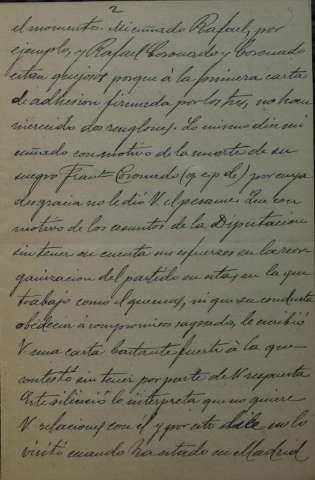 2
el momento. Mi cuñado Rafael, por
ejemplo, y Rafael Coronado y Coronado
están quejosos porque á la primera carta
de adhesion firmada por los tres, no han
merecido dos renglones. Lo mismo dice mi
cuñado con motivo de la muerte de su
suegro Franco Coronado (q e p d) por cuya
desgracia no le dió V. el pesame. Que con
motivo de los asuntos de la Diputacion
sin tener en cuenta sus esfuerzos en la reor-
ganizacion del partido en esta, en la que
trabajó como el que mas, ni que su conducta
obedecia á compromisos sagrados, le escribió
V una carta bastante fuerte á la que
contestó sin tener por parte de V respuesta
Este silencio lo interpreta que no quiere
V relaciones con él y por esto dice no lo
visitó cuando ha estado en Madrid